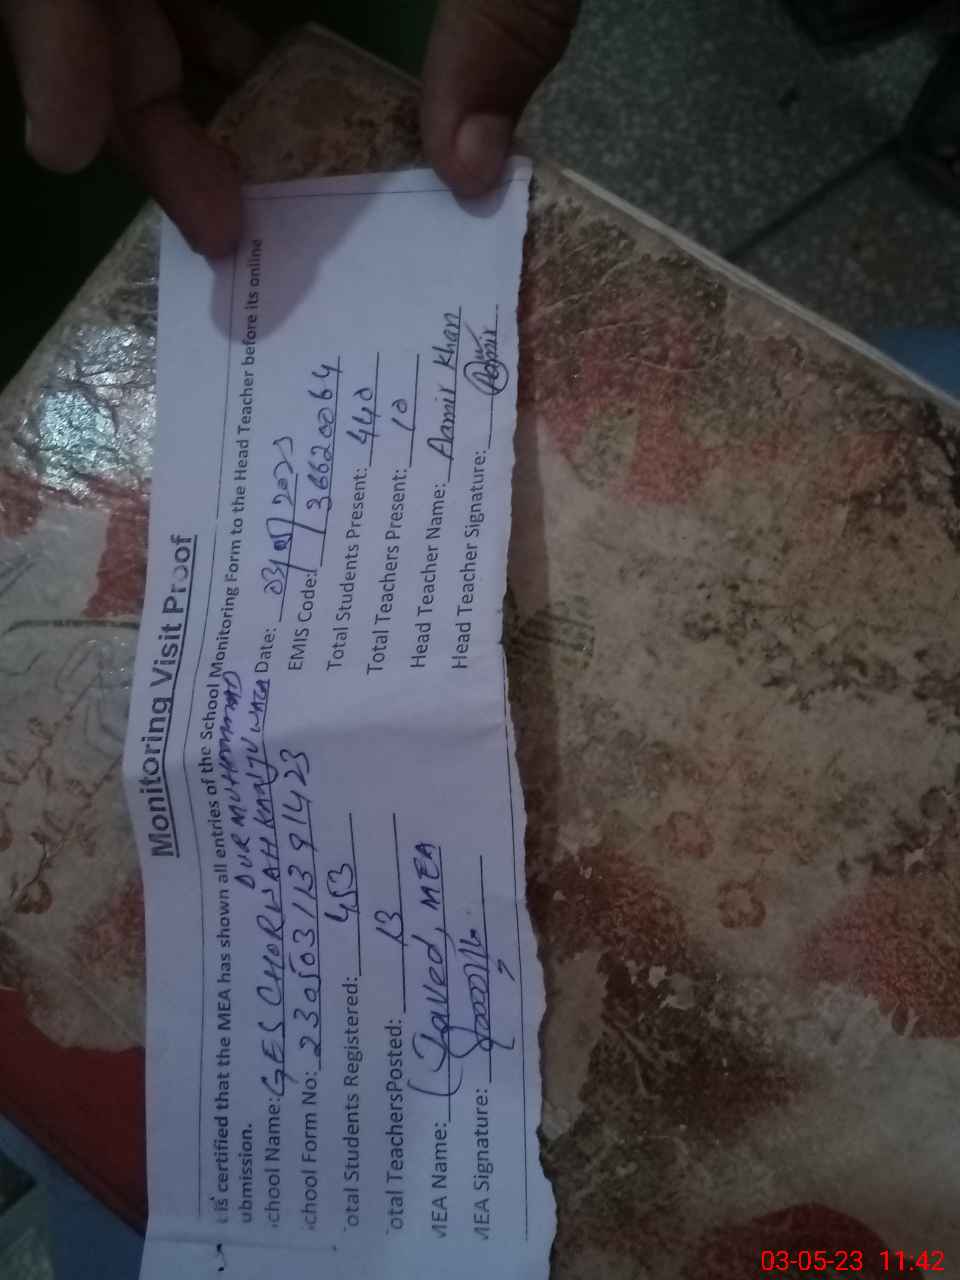 Monitoring Visit Proof
is certified that the MEA has shown all entries of the School Monitoring Form to the Head Teacher before its online
ubmission.
DUR MUHAMMAD
chool Name: GES CHORWAH KANJU WAGA Date: 03/05/2023
chool Form No: 23050311391423 EMIS Code: 36620064
otal Students Registered: 453 Total Students Present: 440
otal TeachersPosted: 13 Total Teachers Present: 10
MEA Name: Javed, MEA Head Teacher Name: Aamir Khan
MEA Signature: Head Teacher Signature: Aamir
03-05-23 11:42